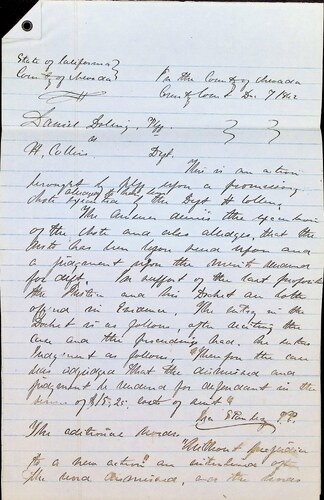 State of California }
County of Nevada }
In the County of Nevada
County Court Dec. 7 1862
Daniel Dolsing, Plff
vs
H. Collins Deft.
This is an action
brought by Plff upon a promissory
alledged to have been
Note executed by the Deft H Collins
The Answer denies the execution
of the Note and also alledges, that the
Note has been upon and
a judgment upon the merit rendered
for deft. In support of the last
the Justice and his Docket are both
offered in Evidence, The entry in the
Docket is as follows, after reciting the
case and the proceedings had, he enters
Judgment as follows, "Therefore the case
was adjudged that the dismissed and
judgement be rendered for defendant in the
of $15.25. cost of suit"
J.P.
The additional words
"Without prejudice
to a new action" are interlined after
the word dismissed, and the words